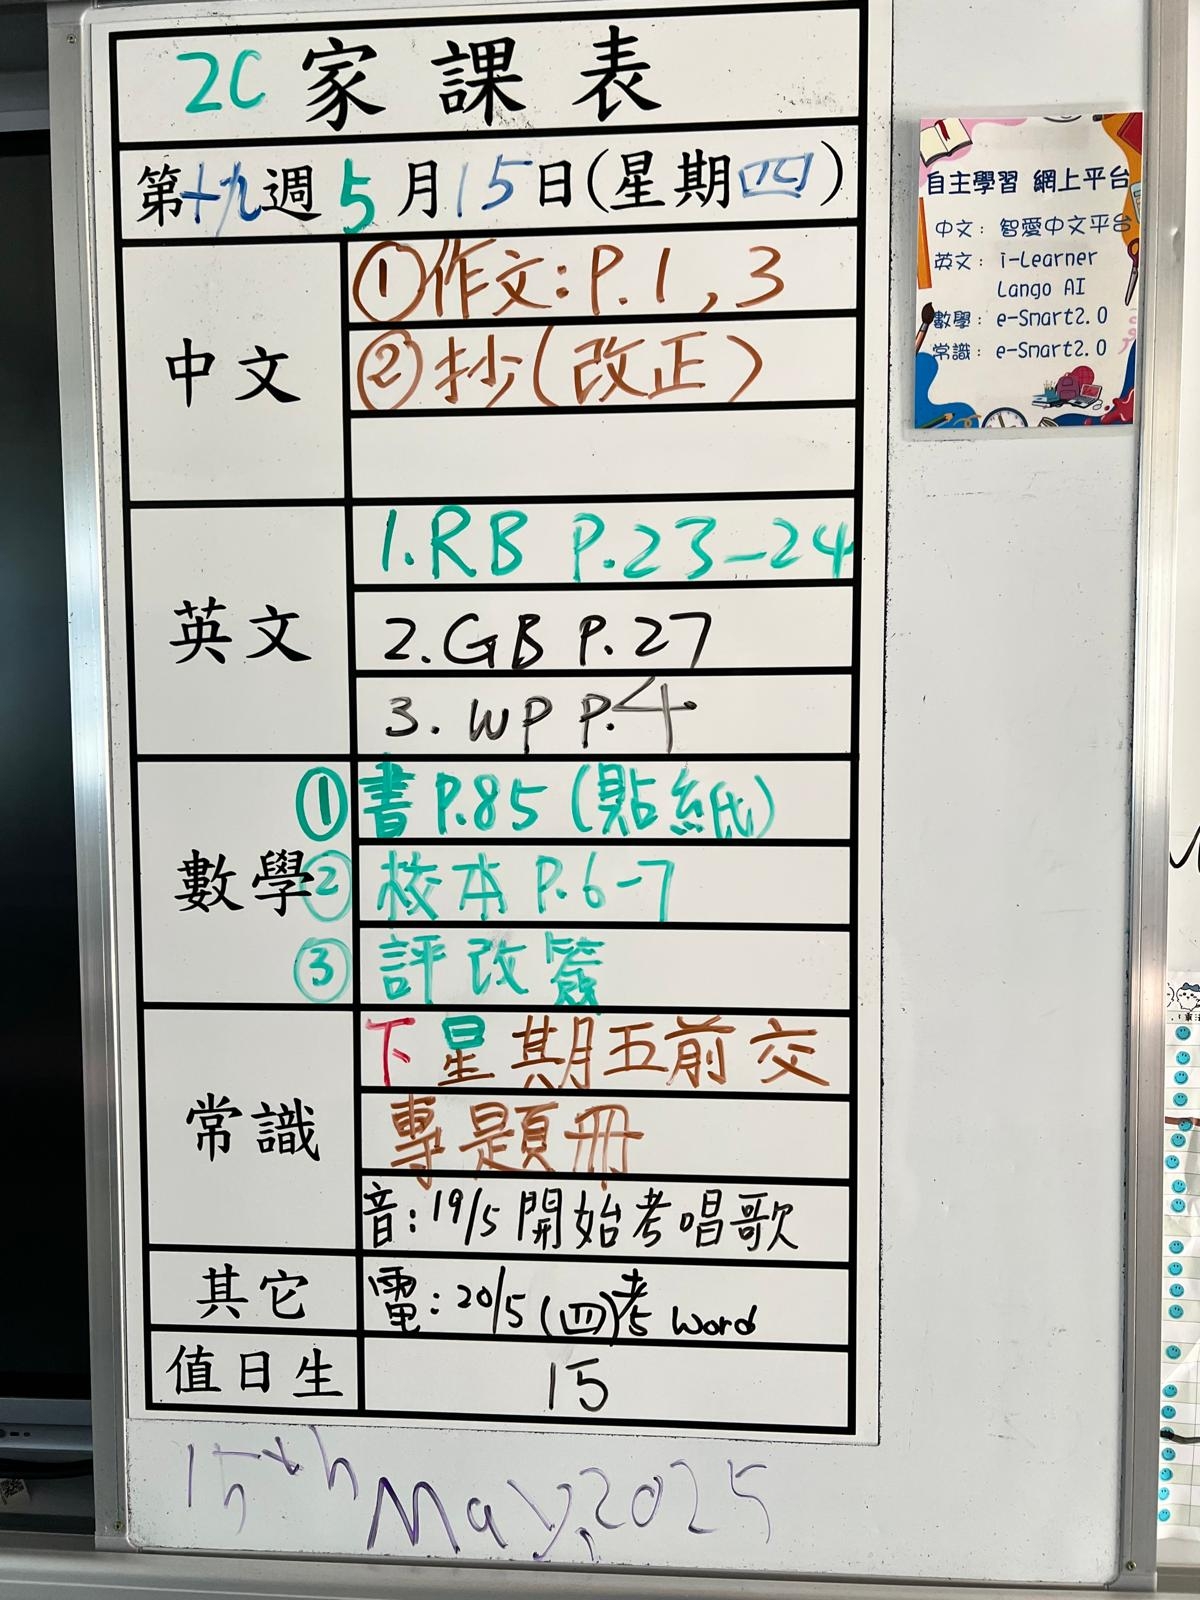 2C 家課表
第十九週 5月15日(星期四)
中文
①作文:P.1,3
②抄(改正)
英文
1.RB P.23-24
2.GB P.27
3.WP P.4
數學
①書P.85(貼紙)
②校本P.6-7
③評改簽
常識
下星期五前交
專題冊
音:19/5開始考唱歌
其它
電:20/5(四)考Word
值日生
15
15th May,2025
自主學習 網上平台
中文: 智愛中文平台
英文: i-Learner
Lango AI
數學: e-Smart2.0
常識: e-Smart2.0